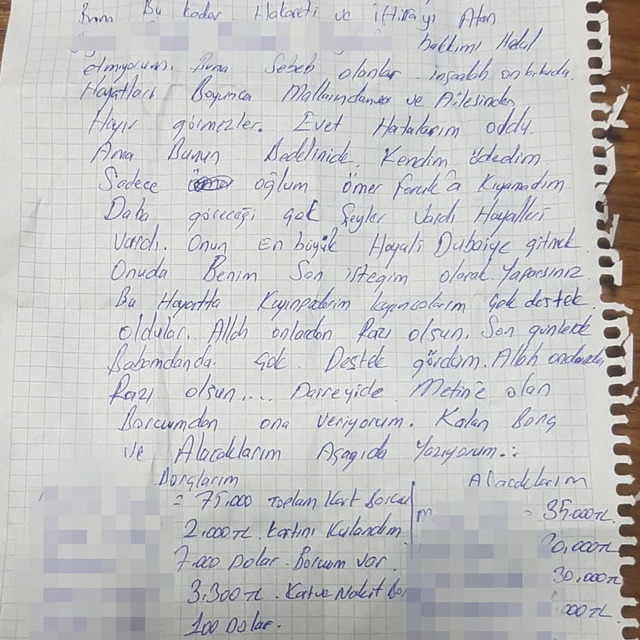 Bana Bu kadar. Hakareti ve iftirayı Atan
hakkımı Helal
etmiyorum. Buna Sebeb olanlar inşaallah onbinde.
Hayatları Boyunca Mallarından ve Ailesinden
Hayır görmezler. Evet Hatalarım oldu.
Ama Bunun Bedelinide Kendim ödedim.
Sadece oğlum ömer faruk'a Kıyamadım
Daha göreceği çok Şeyler vardı Hayalleri
Vardı. Onun En büyük Hayali Dubaiye gitmek
Onuda Benim Son isteğim olarak Yaparsınız
Bu Hayatta Kayınpederim kayıncolarım çok destek
oldular. Allah onlardan Razı olsun. Son günlerde
Babamdanda çok Destek gördüm. Allah ondanda
Razı olsun.... Daireyide Metin'e olan
Borcumdan ona veriyorum. Kalan Borç
ve Alacaklarım Aşağıda Yazıyorum.:
Borçlarım Alacaklarım
= 75.000 Toplam Kart Borcu = 35.000TL
2.000TL. Kartını Kulandım 20,000TL
7.000 Dolar. Borcum var. 30,000TL
3.300TL. Kart ve Nakit Bo 000TL
100 Dolar.